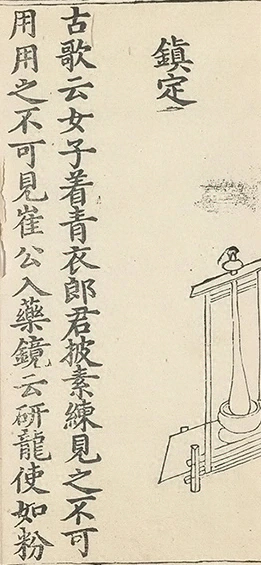 鎮定
古歌云女子着青衣郎君披素練見之不可
用用之不可見崔公入藥鏡云研龍使如粉